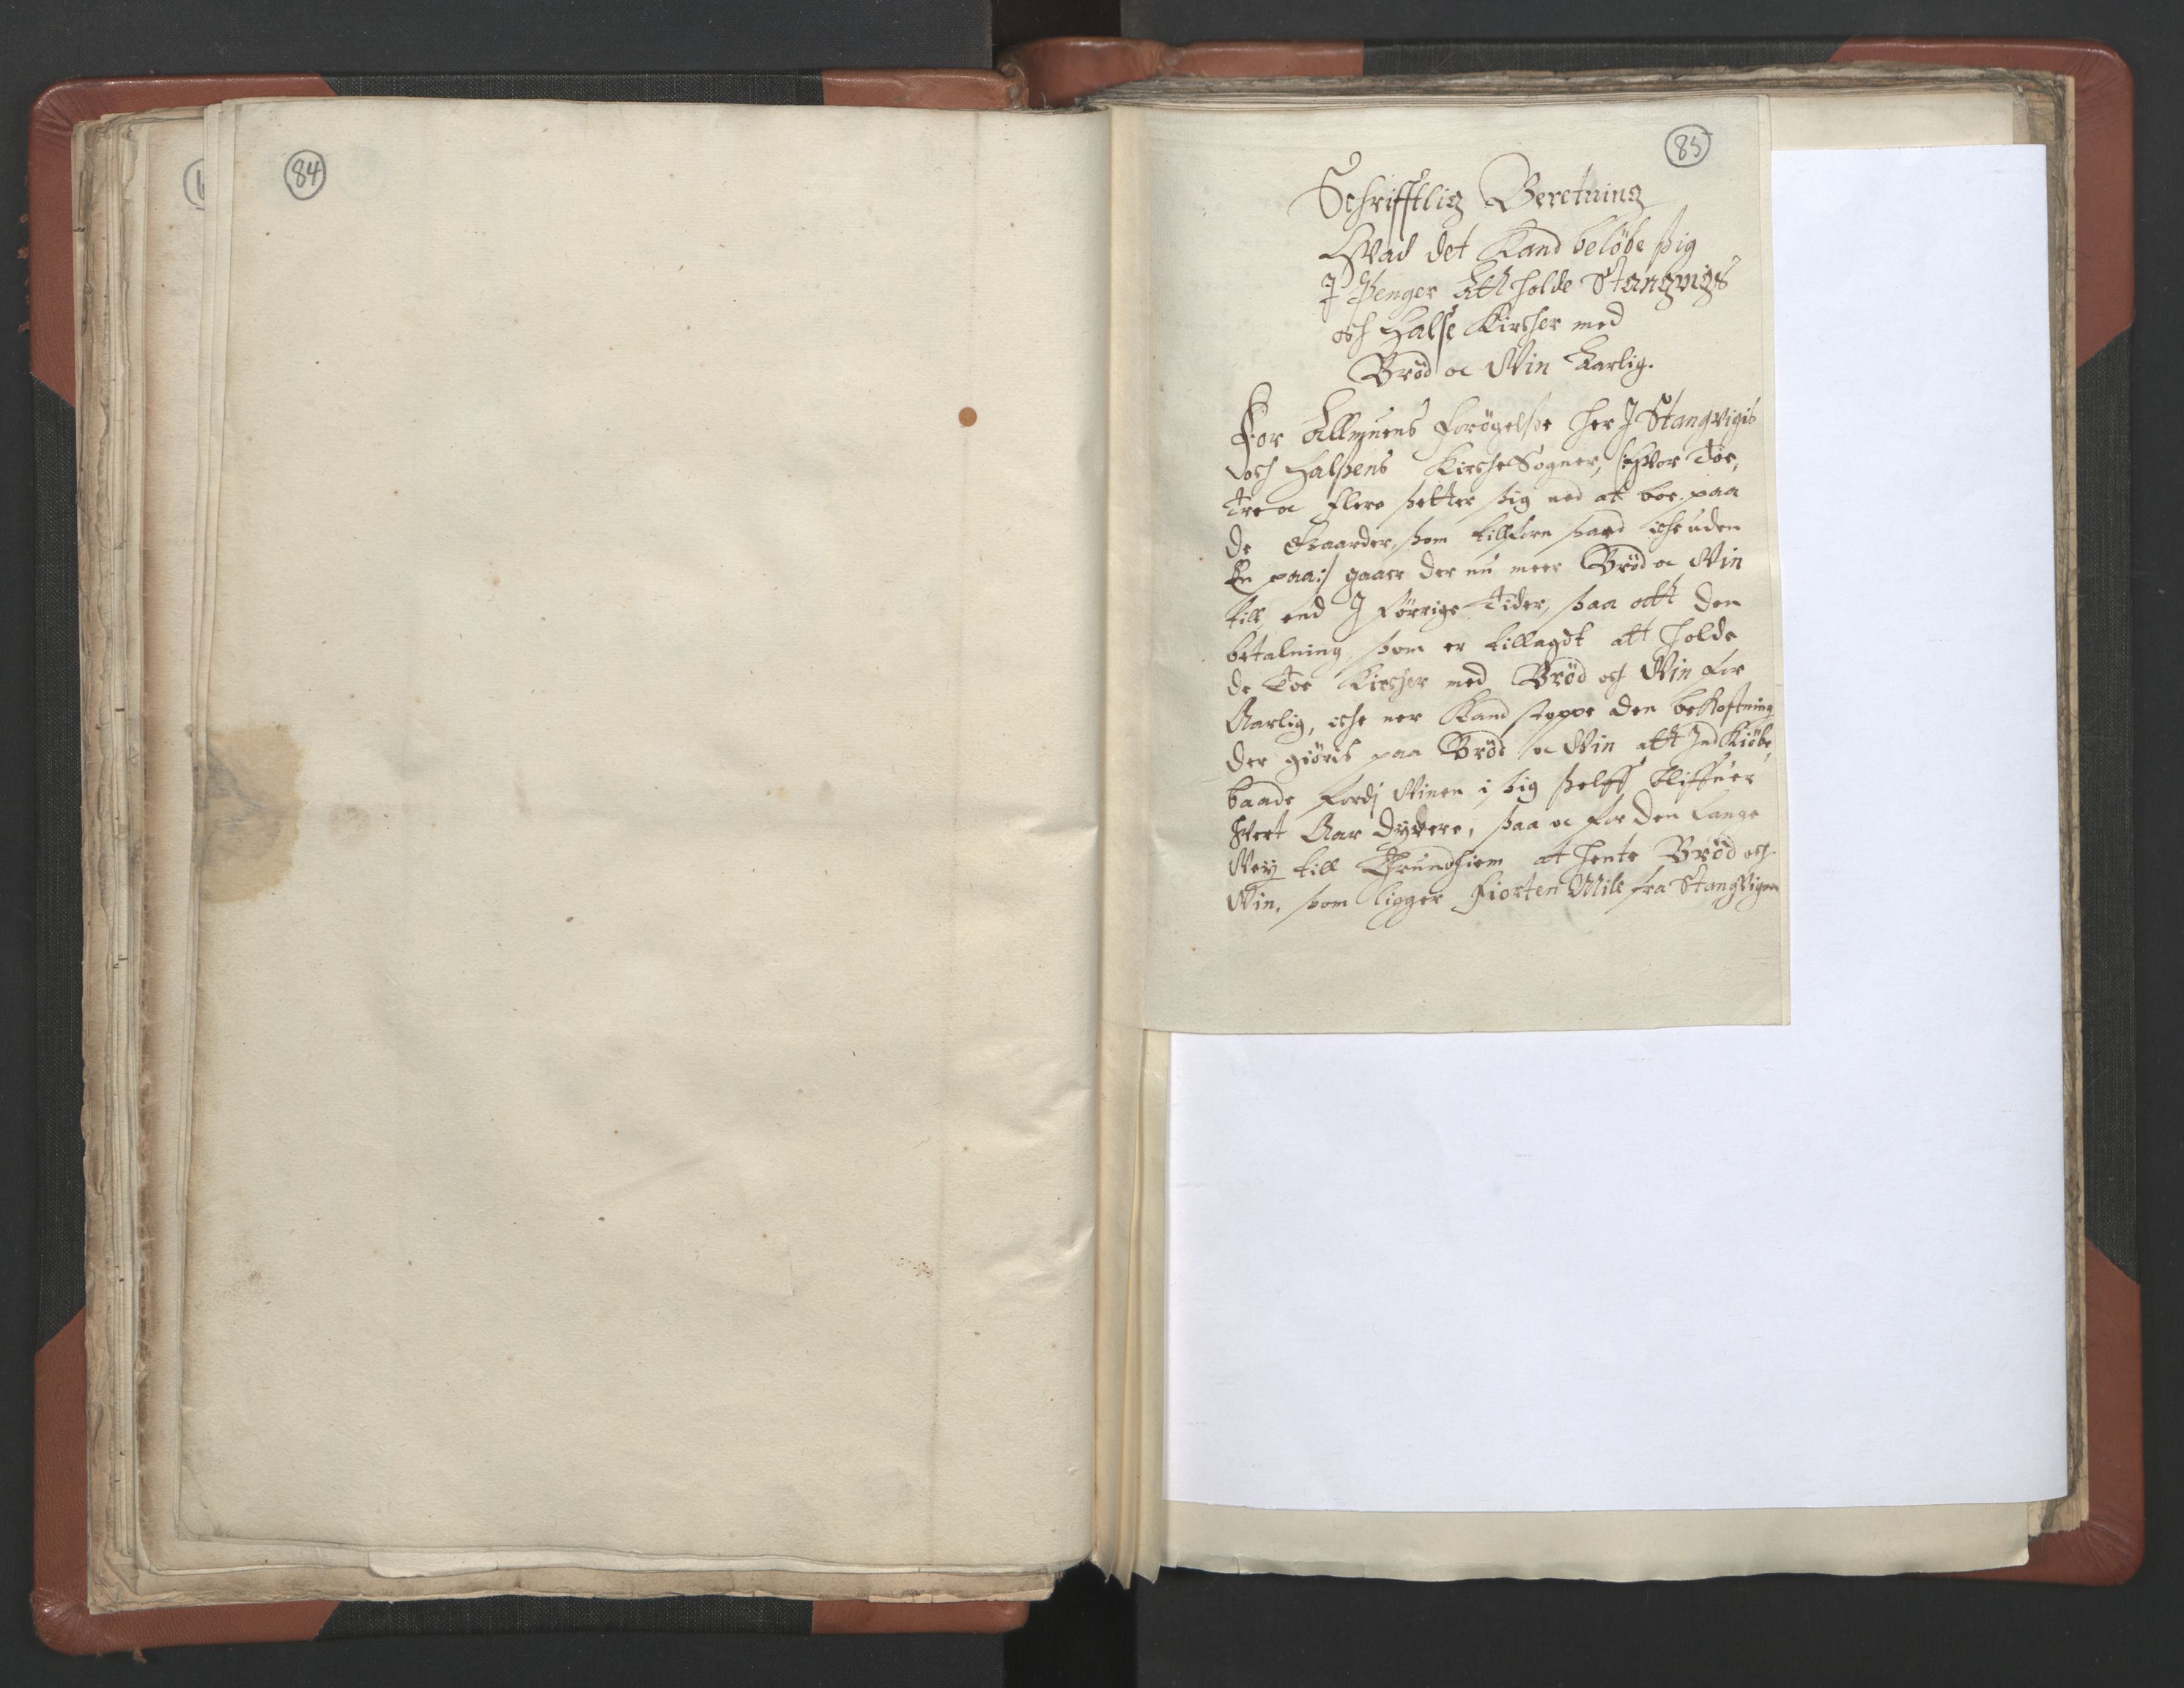 84
85
Schrifftlig Beretning
Hvad det Kand beløbe sig
J Penger Ath holde Stangvigs
och Halse Kircher med
Brød oc Vin Aarlig.
For Allmuens forøgelse her J Stangvigs
och Halsens KircheSogner, (: hvor Toe,
Tre oc flere sætter sig ned at boe paa
de Gaarder, som tillforn vaar iche uden
En paa :) gaaer der nu meer Brød oc Vin
till, end J forrige Tider, saa att den
betalning, som er tillagdt att holde
de Toe Kircher med Brød och Vin for
Aarlig, iche ner Kand stoppe den bekostning
der giøris paa Brød oc Vin att Jnd Kiøbe,
baade fordj Vinen i sig selff bliffuer
hvert Aar dyrere, saa oc for den lange
Vey till Thrundhiem at hente Brød och
Vin, som ligger Fiorten Mile fra Stangvigen